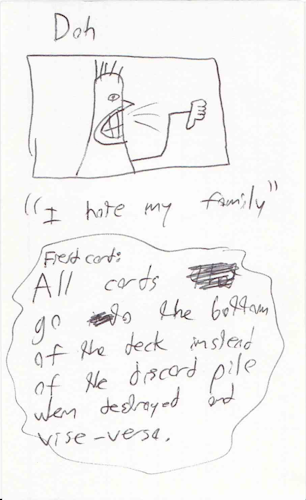 Doh
"I hate my family"
Field card:
All cards
go to the bottom
of the deck instead
of the discard pile
when destroyed and
vise-versa.